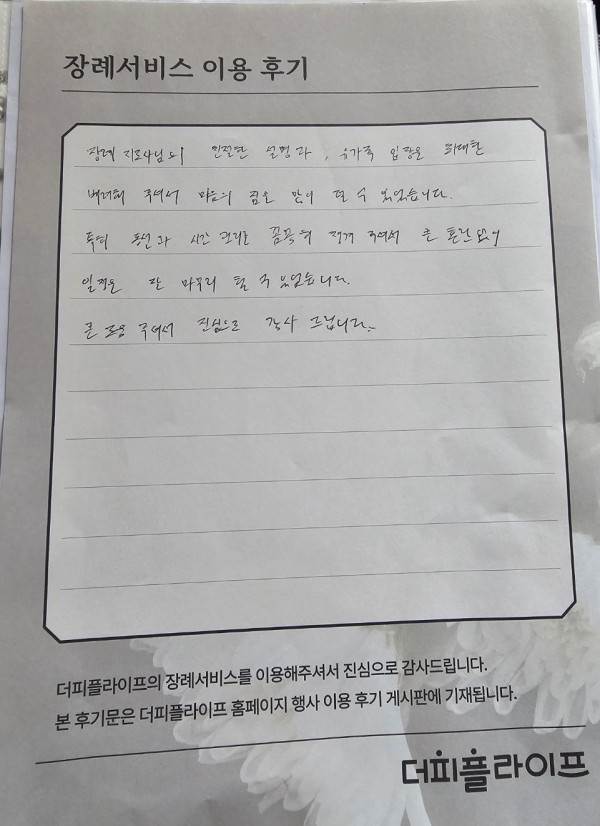 장례서비스 이용 후기
장례 지도사님의 친절한 설명과, 유가족 입장을 최대한
배려해 주셔서 마음의 짐을 많이 덜 수 있었습니다.
특히 동선과 시간 관리를 꼼꼼히 챙겨 주셔서 큰 혼란 없이
일정을 잘 마무리 할 수 있었습니다.
큰 도움 주셔서 진심으로 감사 드립니다.
더피플라이프의 장례서비스를 이용해주셔서 진심으로 감사드립니다.
본 후기문은 더피플라이프 홈페이지 행사 이용 후기 게시판에 기재됩니다.
더피플라이프